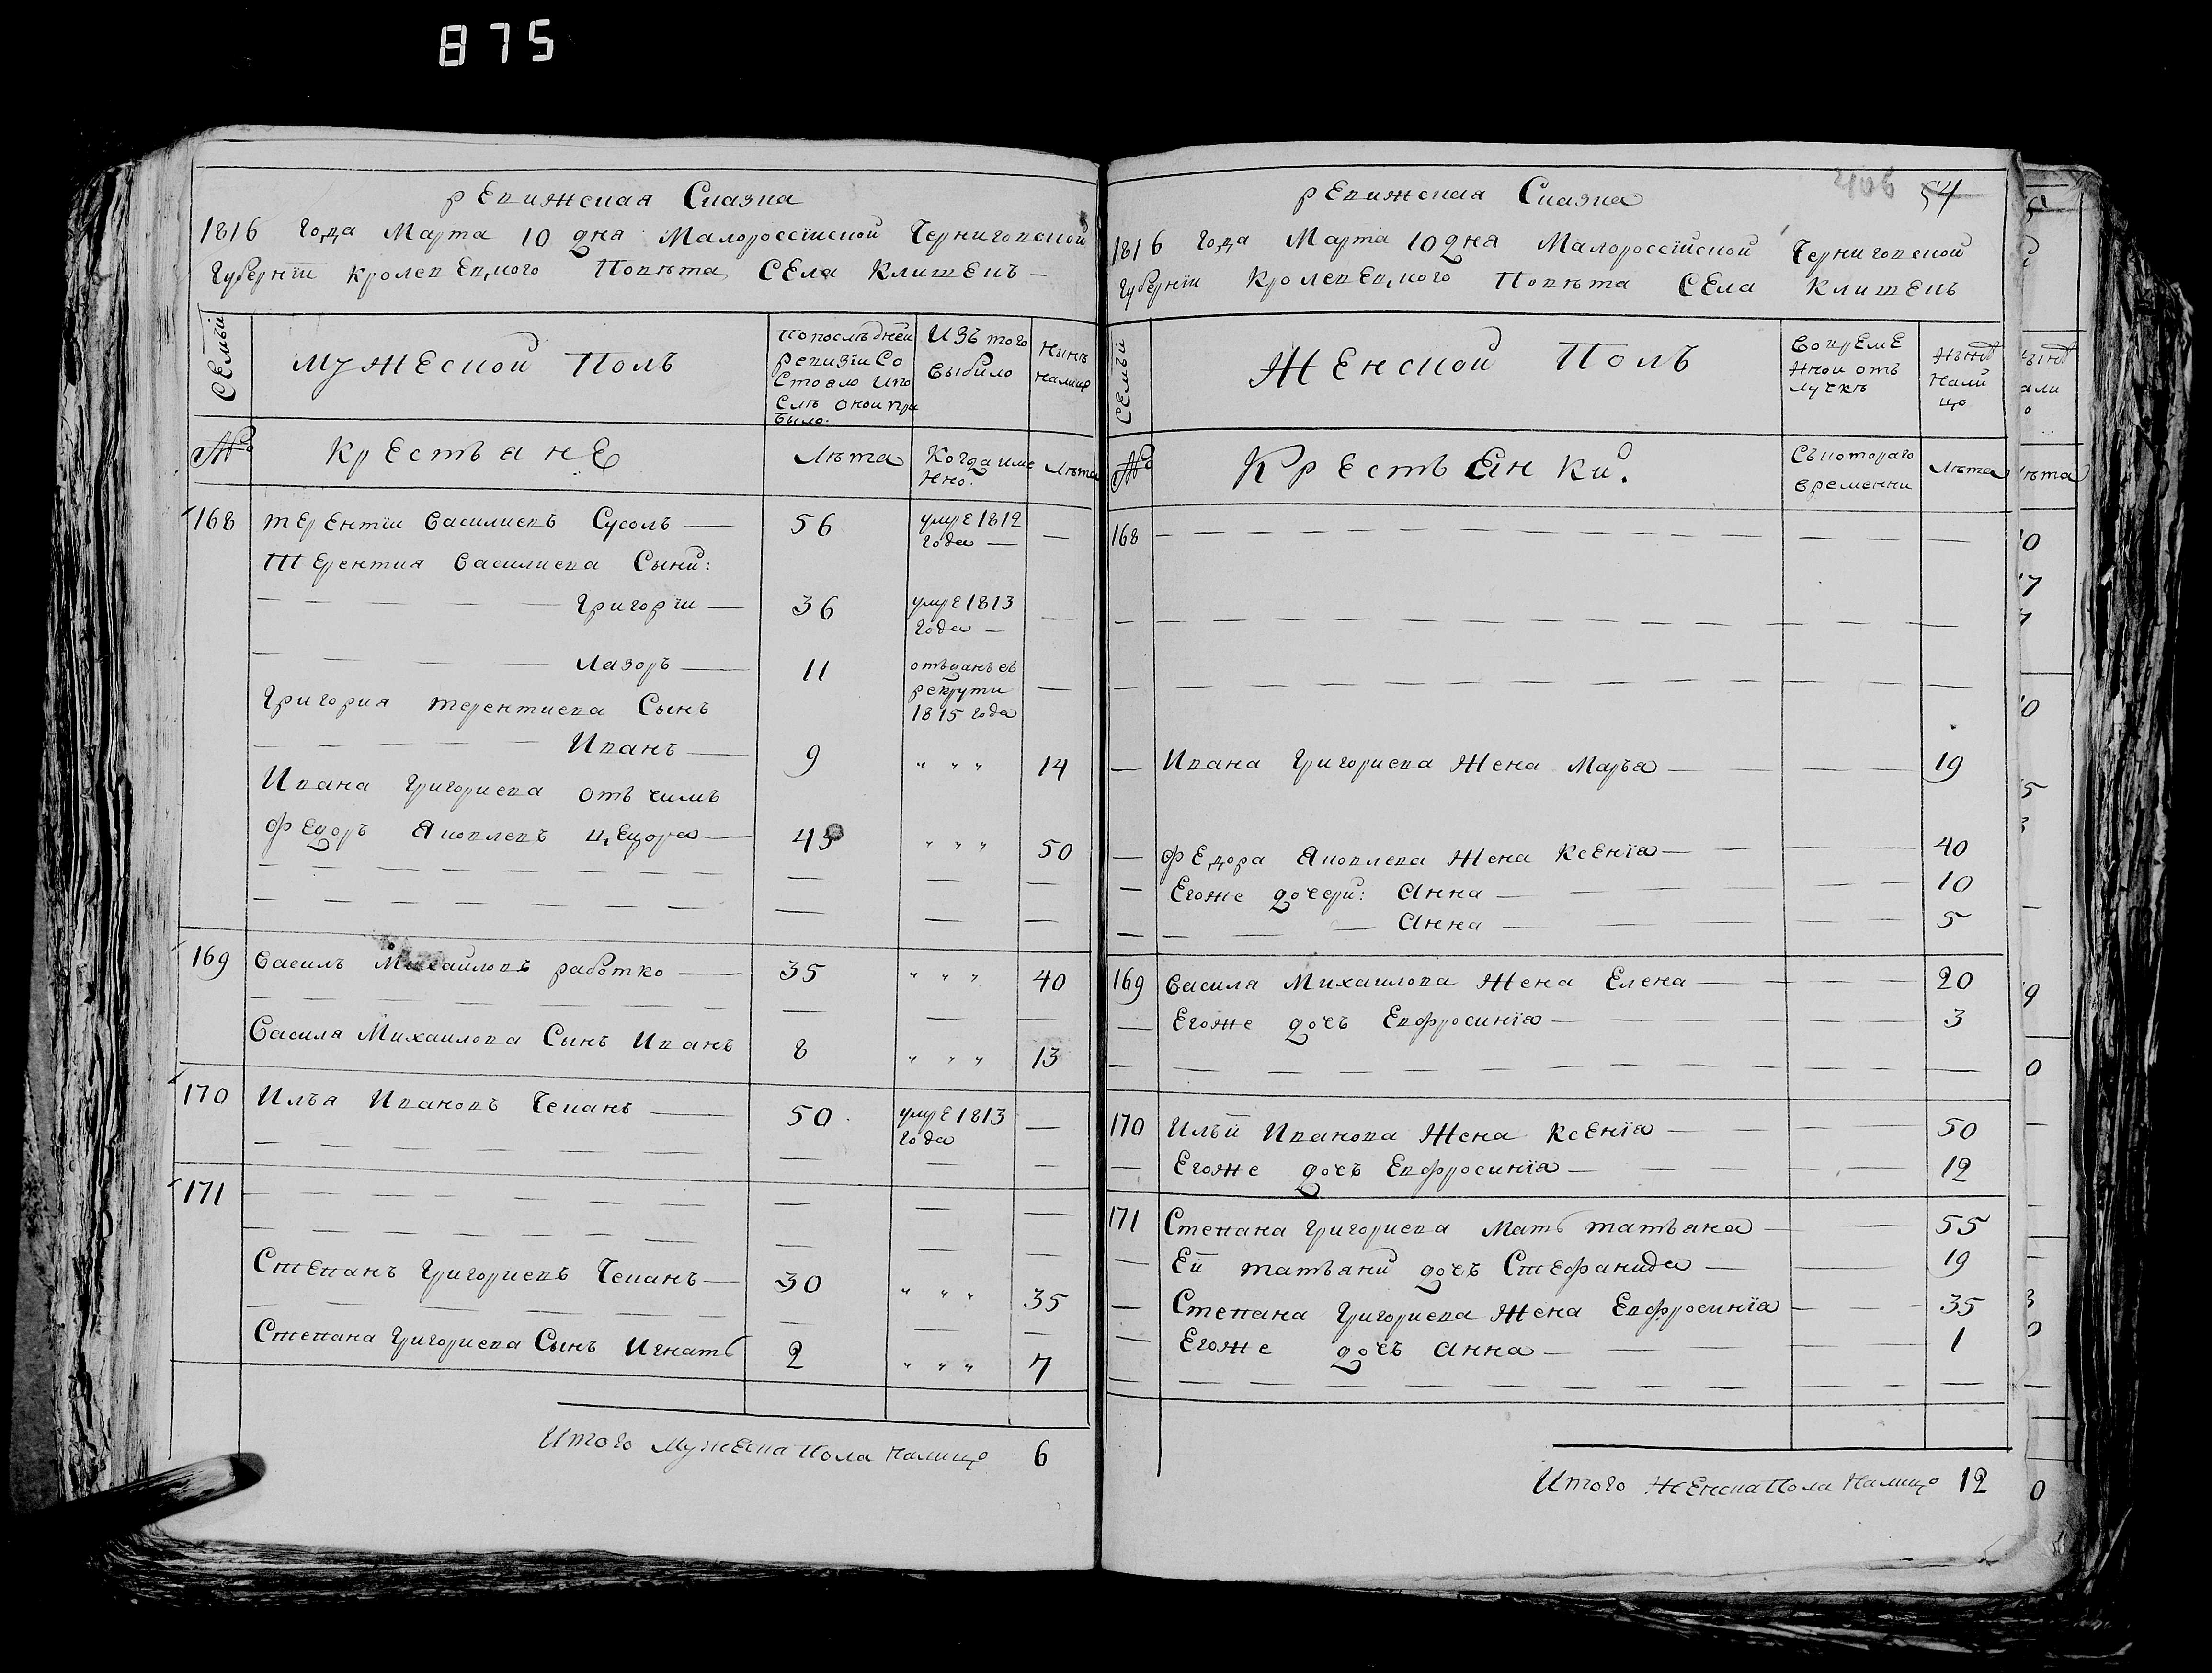 875
Ревижская Сказка
1816 Года Марта 10 дня Малороссійской Черниговской
Губерніи Кролевецкого Повѣта Села Клишекъ
Семьи
Мужеской Полъ
По послѣдней Ревизіи Со Стояло и по слѣ оной при было.
Изъ того выбило
Нынѣ налицо
№
Крестьяне
Лѣта
Когда име нно.
Лѣта
168 Терентіи Василиевъ Сусолъ 56 умре 1812 года
Терентия Василиева Сыни:
Григоріи 36 умре 1813 года
Лазоръ 11 отъданъ въ рекрути 1815 года
Григория Терентиева Сынъ
Иванъ 9 " " " 14
Ивана Григориева отъчимъ
Федоръ Яковлевъ Цецора 45 " " " 50
169 Василъ Михайловъ работко 35 " " " 40
Василя Михаилова Сынъ Иванъ 8 " " " 13
170 Илъя Ивановъ Чепанъ 50 умре 1813 года
171
Степанъ Григориевъ Чепанъ 30 " " " 35
Степана Григориева Сынъ Игнатъ 2 " " " 7
Итого Мужеска Пола Налицо 6
406 54
Ревижская Сказка
1816 Года Марта 10 дня Малороссійской Черниговской
Губерніи Кролевецкого Повѣта Села Клишекъ
Семьи
Женской Полъ
Во време нной отъ лучкѣ
Нынѣ Нали цо
№
Крестьянки.
Съ котораго времени
Лѣта
168
Ивана Григориева Жена Маръя 19
Федора Яковлева Жена Ксенія 40
Егоже дочери: Анна 10
Анна 5
169 Василя Михаилова Жена Елена 20
Егоже дочъ Евфросинія 3
170 Илъи Иванова Жена Ксенія 50
Егоже дочъ Евфросинія 12
171 Степана Григориева Мать татъяна 55
Ей татъяни дочъ Стефанида 19
Степана Григориева Жена Евфросинія 35
Егоже дочъ Анна 1
Итого Женска Пола Налицо 12